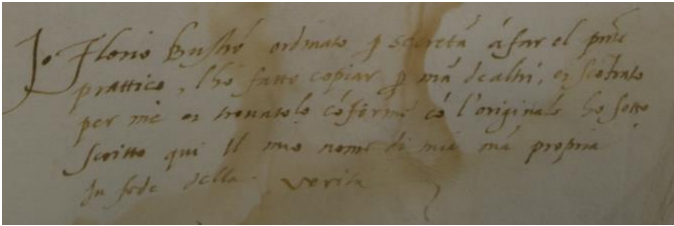 Jo. Florio Bustrõ ordinato ꝑ secretã à far el pñte
prattico, l'hò fatto copiar ꝑ mã de altri, et scõtrato
per me et trovatolo cõforme cõ l'originale ho sotto
scritto qui Il mio nome di mia mã propria
In fede della verita